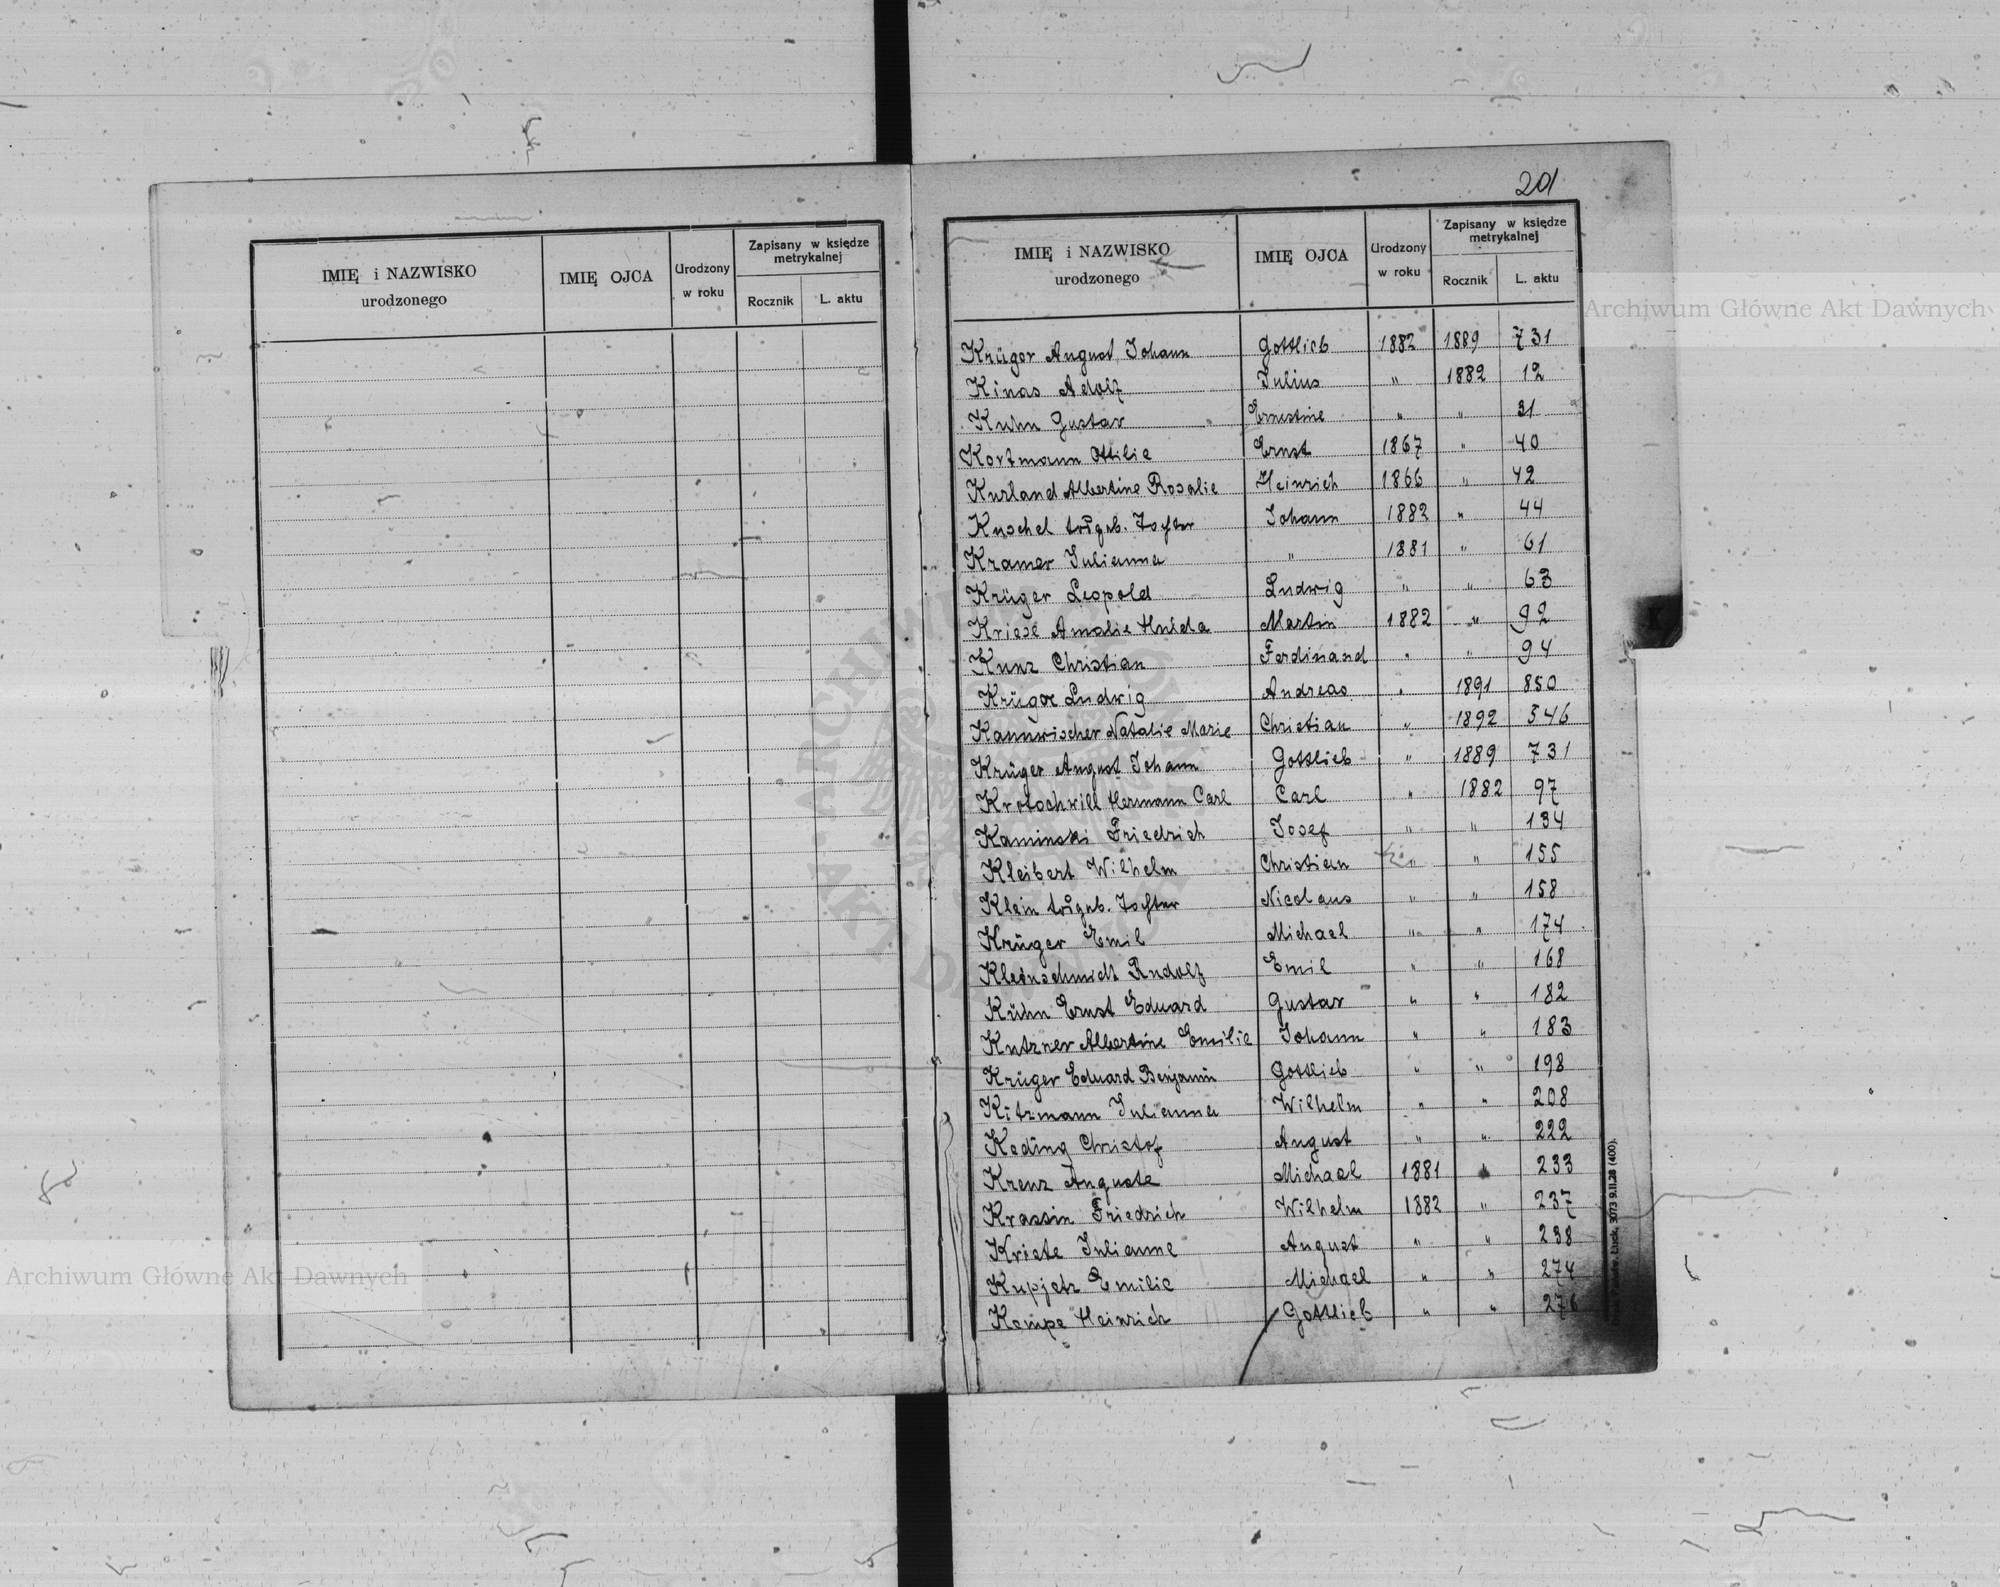 201
IMIĘ i NAZWISKO urodzonego IMIĘ OJCA Urodzony w roku Zapisany w księdze metrykalnej Rocznik L. aktu
IMIĘ i NAZWISKO urodzonego IMIĘ OJCA Urodzony w roku Zapisany w księdze metrykalnej Rocznik L. aktu
Archiwum Główne Akt Dawnych
Krüger August Johann Gottlieb 1882 1889 731
Kinas Adolf Julius " 1882 12
Kuhn Gustav Ernestine " " 31
Kortmann Ottilie Ernst 1867 " 40
Kurland Albertine Rosalie Heinrich 1866 " 42
Kuschel totgeb. Tochter Johann 1882 " 44
Kramer Julianna " 1881 " 61
Krüger Leopold Ludwig " " 63
Kriese Amalie Hulda Martin 1882 " 92
Kunz Christian Ferdinand " " 94
Krüger Ludwig Andreas " 1891 850
Kannwischer Natalie Marie Christian " 1892 346
Krüger August Johann Gottlieb " 1889 731
Krotochwill Hermann Carl Carl " 1882 97
Kaminski Friedrich Josef " " 134
Kleibert Wilhelm Christian " " 155
Klein totgeb. Tochter Nicolaus " " 158
Krüger Emil Michael " " 174
Kleinschmidt Rudolf Emil " " 168
Kühn Ernst Eduard Gustav " " 182
Kutzner Albertine Emilie Johann " " 183
Krüger Eduard Benjamin Gottlieb " " 198
Kitzmann Julianna Wilhelm " " 208
Keding Christof August " " 222
Krenz Auguste Michael 1881 " 233
Krassin Friedrich Wilhelm 1882 " 237
Kriete Julianne August " " 238
Kupjetz Emilie Michael " " 274
Kempe Heinrich Gottlieb " " 276
Łuck, 3073 9.II.28 (400).
Archiwum Główne Akt Dawnych